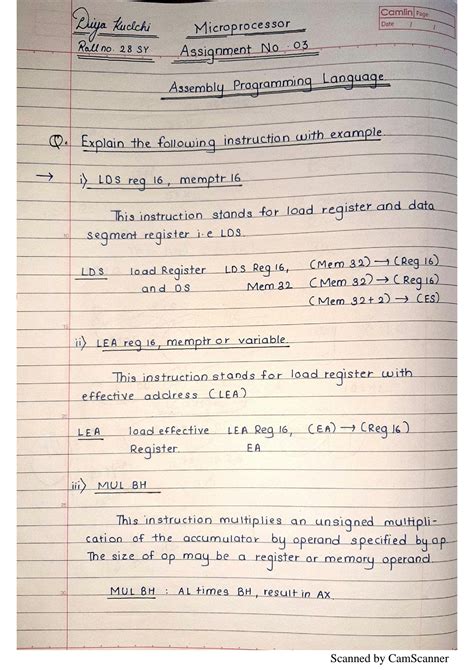 Diya Kulchi
Microprocessor
Camlin Page
Date / /
Roll no. 28 SY
Assignment No. 03
Assembly Programming Language
Q. Explain the following instruction with example
→ i) LDS reg 16, memptr 16
This instruction stands for load register and data
segment register i.e LDS.
LDS load Register LDS Reg 16, (Mem 32) → (Reg 16)
and DS Mem 32 (Mem 32) → (Reg 16)
(Mem 32+2) → (ES)
ii) LEA reg 16, memptr or variable
This instruction stands for load register with
effective address (LEA)
LEA load effective LEA Reg 16, (EA) → (Reg 16)
Register. EA
iii) MUL BH
This instruction multiplies an unsigned multipli-
cation of the accumulator by operand specified by op
The size of op may be a register or memory operand.
MUL BH : AL times BH, result in AX.
Scanned by CamScanner